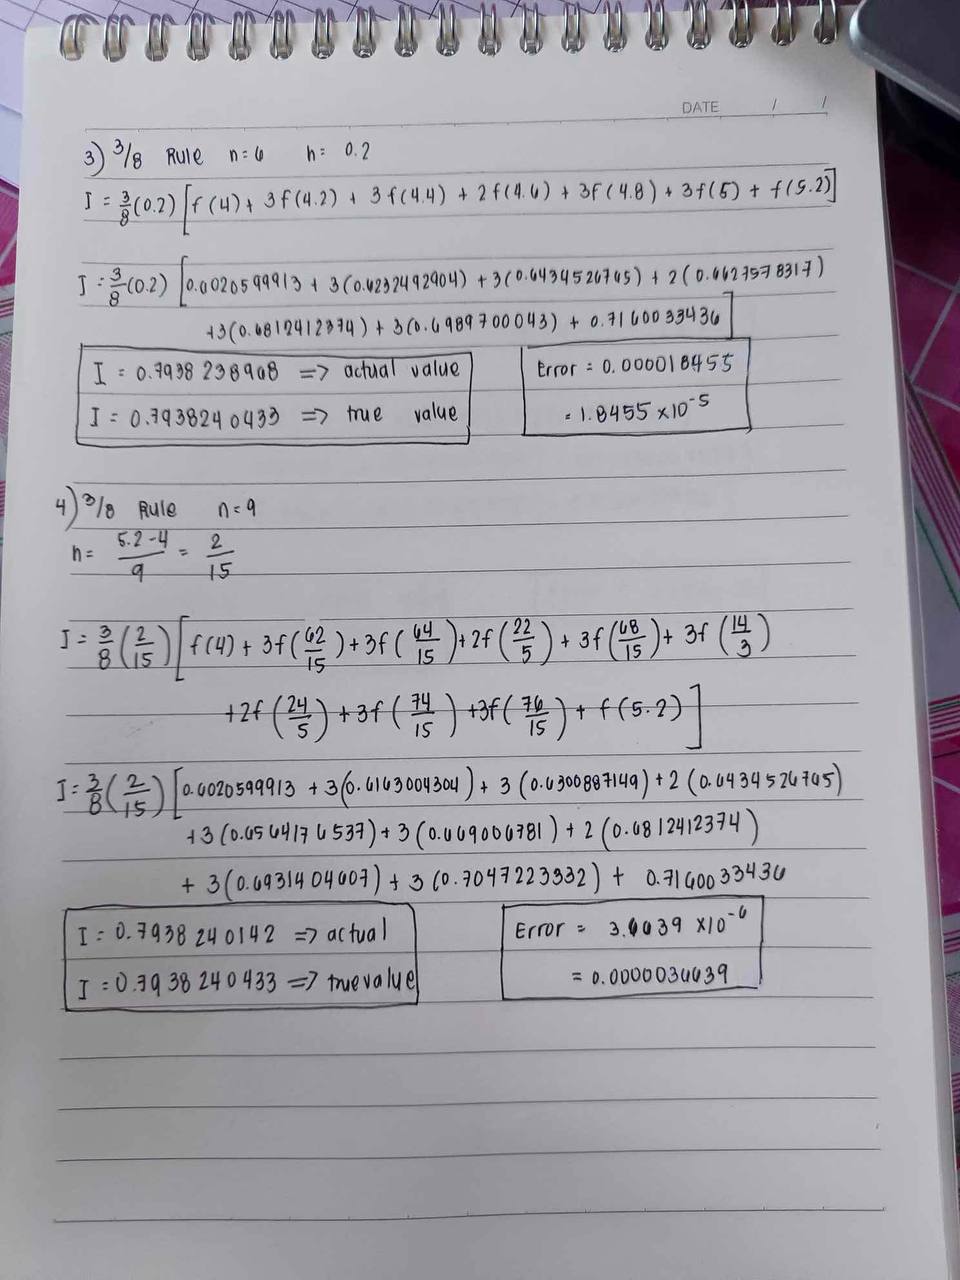 DATE / /
3) 3/8 Rule n=6 h= 0.2
I = 3/8 (0.2) [f(4) + 3f(4.2) + 3f(4.4) + 2f(4.6) + 3f(4.8) + 3f(5) + f(5.2)]
I = 3/8 (0.2) [0.6020599913 + 3(0.6232492904) + 3(0.6434526765) + 2(0.6627578317)
+3(0.6812412374) + 3(0.6989700043) + 0.7160033436]
I = 0.7938238968 => actual value
I = 0.7938240433 => true value
Error = 0.000018455
= 1.8455 x10^-5
4) 3/8 Rule n=9
h= 5.2-4/9 = 2/15
I = 3/8 (2/15) [f(4) + 3f(62/15) + 3f(64/15) + 2f(22/5) + 3f(68/15) + 3f(14/3)
+2f(24/5) + 3f(74/15) + 3f(76/15) + f(5.2)]
I = 3/8 (2/15) [0.6020599913 + 3(0.6163004304) + 3(0.6300887149) + 2(0.6434526765)
+3(0.6564176537) + 3(0.669006781) + 2(0.6812412374)
+ 3(0.6931404607) + 3(0.7047223332) + 0.7160033436
I = 0.7938240142 => actual
I = 0.7938240433 => true value
Error = 3.6639 x10^-6
= 0.0000036639